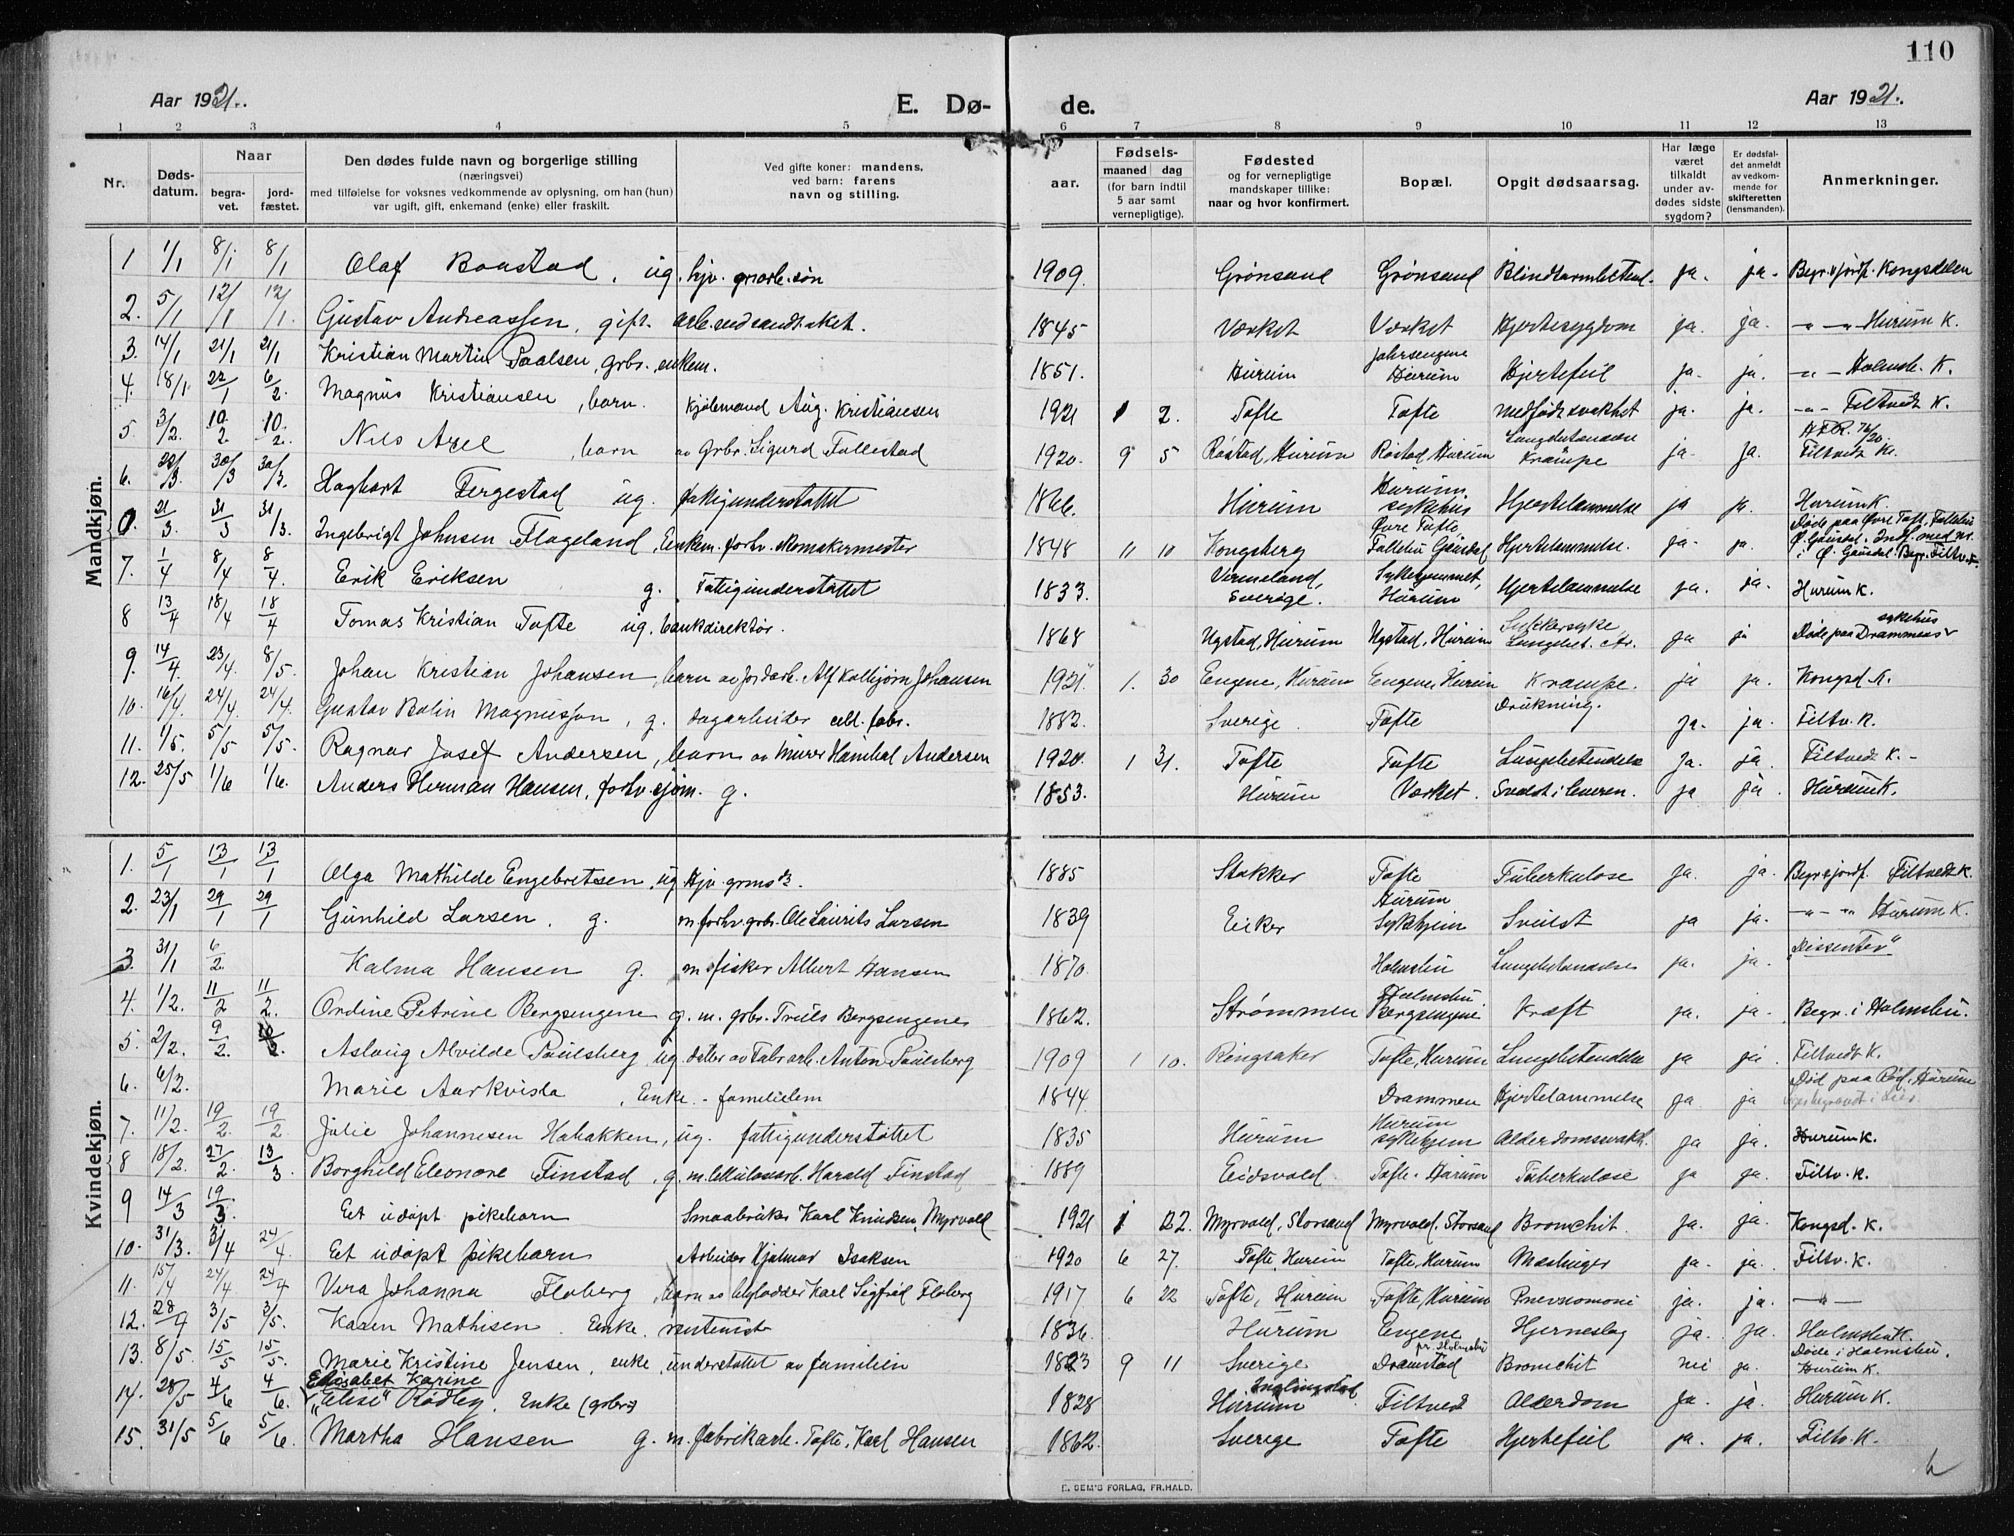 110
Aar 1921.
E. Dø-
de.
Aar 1921.
1 2 3 4 5 6 7 8 9 10 11 12 13
Nr.
Døds-
datum.
Naar
begra-
vet.
jord-
fæstet.
Den dødes fulde navn og borgerlige stilling
(næringsvei)
med tilføielse for voksnes vedkommende av oplysning, om han (hun)
var ugift, gift, enkemand (enke) eller fraskilt.
Ved gifte koner: mandens,
ved barn: farens
navn og stilling.
aar.
Fødsels-
maaned dag
(for barn indtil
5 aar samt
vernepligtige).
Fødested
og for vernepligtige
mandskaper tillike:
naar og hvor konfirmert.
Bopæl.
Opgit dødsaarsag.
Har læge
været
tilkaldt
under av-
dødes sidste
sygdom?
Er dødsfal-
det anmeldt
av vedkom-
mende for
skifteretten
(lensmanden).
Anmerkninger.
Mandkjøn.
1 1/1 8/1 8/1 Olaf Baastad, ug. hjv. grarb. søn 1909. Grønsand Grønsand Blindtarmbetend. ja. ja. Begr. o jordf. Kongsdelen
2. 5/1 12/1 12/1. Gustav Andreassen, gift. 1845 Værket Værket Hjertesygdom ja. ja. — " — Hurum K.
3. 14/1 21/1 21/1 Kristian Martin Paalsen, grbr., enkem. 1851. Hurum Hurum Hjertefeil ja. ja. — " — Holmsb. K.
4. 18/1. 22/1 6/2. Magnus Kristiansen, barn. Kjølemand Aug. Kristiansen 1921 1 2. Tofte Tofte medfødt svakhet ja. ja. — " — Filtvedt K.
5. 3/2. 10/2 10/2. Nils Axel, barn av Grbr. Sigurd Follestad 1920. 9 5 Røstad, Hurum Røstad, Hurum Lungebetændelse Krampe ja. ja. Filtvedt K.
6. 22/3. 30/3 30/3. Hagbart Fergestad ug. fattigunderstøttet 1866. Hurum Hurum sykehus Hjertelammelse ja ja. Hurum K.
0. 21/3. 31/3 31/3. Ingebrigt Johnsen Flageland, Enkem. forhv. skomakermester 1848 11 10 Kongsberg Øvre Tofte Follebu Gausdal Hjertelammelse. ja. ja. Døde paa Øvre Toft, Follebu Ø. Gausdal. Indf. med nr. i Ø. Gausdal. Begr. Filtv. K.
7. 1/4 8/4 8/4. Erik Eriksen g. Fattigunderstøttet 1833. Vermeland, Sverige. Hurum Hjertelammelse ja. ja. Hurum K.
8 13/4 18/4 18/4 Tomas Kristian Tofte ug. bankdirektør. 1868 Ugstad, Hurum Ugstad, Hurum Sukkersyke ja ja Døde paa Drammens sykehus
9. 14/4. 23/4. 8/5. Johan Kristian Johansen, barn av jordarb. Alf Kolbjørn Johansen 1921 1. 30 Engene, Hurum Engene, Hurum Krampe. ja ja. Kongsd. K.
10. 16/4. 24/4. 24/4. Gustav Bolin Magnusson, g. dagarbeider cel. fabr. 1882. Sverige. Tofte Drukning. ja. ja. Filtv. K.
11. 1/5. 5/5 5/5. Ragnar Josef Andersen, barn av Murer Hanibal Andersen 1920. 1 31. Tofte Tofte Lungebetendelse ja. ja. Filtvedt K. –
12. 25/5 1/6 1/6. Anders Herman Hansen, forhv. sjøm. g. 1853. Hurum Værket. Svulst i leveren. ja ja Hurum K.
Kvindekjøn.
1. 5/1 13/1 13/1 Olga Mathilde Engebretsen, ug. 1885 Stokker Tofte Tuberkulose ja. ja. Begr. o jordf. Filtvedt K.
2. 23/1 29/1 29/1 Gunhild Larsen. g. m. forhv. grbr. Ole Laurits Larsen 1839 Eiker Hurum Sykehjem Svulst ja ja. — " — " Hurum K.
3. 31/1 6/2. Kalma Hansen g. m. fisker Albert Hansen 1870. Holmsbu Lungebetændelse ja. ja. "Dissenter"
4. 1/2. 11/2 11/2. Ordine Petrine Bergsengene g. m. grbr. Truls Bergsengene 1862. Strømmen Holmsbu. Bergsengene Kræft ja. ja. Begr. i Holmsbu.
5. 2/2. 9/2. 10/2. Aslaug Alvilde Paulsberg, ug. datter av Fabrarb. Anton Paulsberg 1909 1 10. Ringsaker Tofte, Hurum Lungebetendelse ja ja. Filtvedt K.
6. 6/2. Marie Aarkvisla, Enke – familielem 1844. Drammen Hjertelammelse ja ja Død paa Rød, Hurum
7. 11/2. 19/2. 19/2 Julie Johannesen Habakken, ug. fattigunderstøttet 1835 Hurum Hurum sykehjem Alderdomssvakh. ja ja. Hurum K.
8 18/2. 27/2. 13/3. Borghild Eleonore Finstad, g. m. Cellulosearb. Harald Finstad 1889 Eidsvold. Tofte. Hurum Tuberkulose ja ja Filtv. K.
9 14/3 19/3. Eet udøpt pikebarn Smaabruker Karl Knudsen, Myrvold 1921 1 22. Myrvold, Storsand Myrvold, Storsand Bronchit. ja. ja. Kongsd. K.
10. 31/3. 3/4 24/4. Eet udøpt pikebarn Arbeider Hjalmar Isaksen 1920 6 27. Tofte, Hurum Tofte, Hurum Mæslinger ja. ja. Filtv. K.
11. 15/4 24/4 24/4 Vera Johanna Floberg, barn av Karl Sigfrid Floberg 1917 6 22 Tofte, Hurum Tofte, Hurum Pnevnomoni ja. ja. — " —
12. 28/4 3/5 3/5. Karen Mathisen. Enke. rentenist 1836. Hurum Engene Hjerneslag ja. ja. Holmsbu K.
13. 8/5. 15/5 15/5. Marie Kristine Jensen, enke, understøttet av familien 1823 9 11 Sverige Dramstad pr. Holmsbu Bronchit nei ja. Døde i Holmsbu. Hurum K.
14. 28/5 4/6 4/6. Elisabet Karine "Elise" Rødby. Enke (grbr.) 1828 Hurum Filtved Alderdom ja ja. Hurum K.
15. 31/5 5/6 5/6. Martha Hansen g. m. fabrikarb. Tofte, Karl Hansen 1862. Sverige Tofte Hjertefeil ja. ja. Filtv. K.
E. SEM'S FORLAG, FR.HALD.